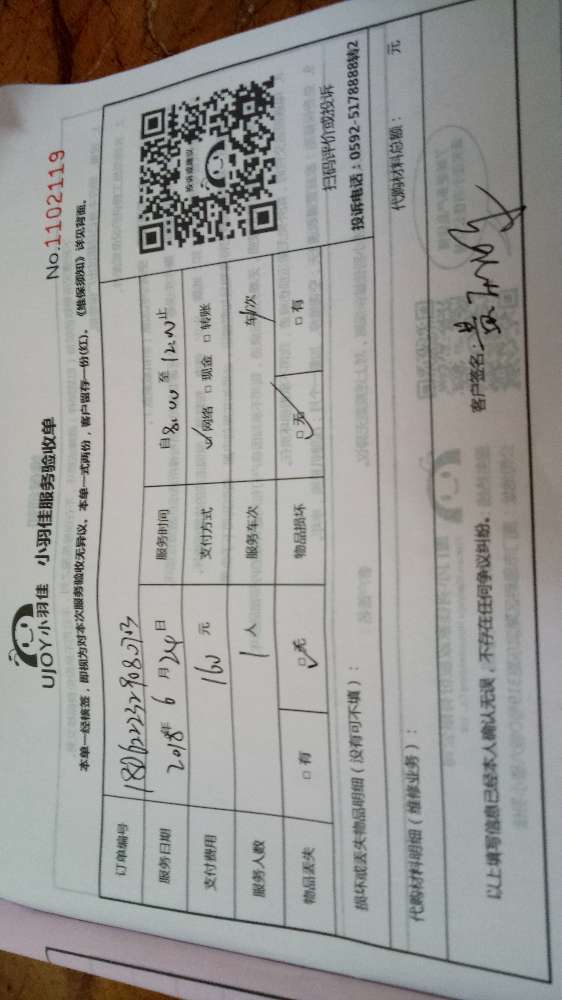 UJOY小羽佳 小羽佳服务验收单
No.1102119
本单一经核签，即视为对本次服务验收无异议。本单一式两份，客户留存一份(红)。《维保须知》详见背面。
订单编号
服务日期 2018年 6 月 24 日 服务时间 自8:00 至 12:00 止
支付费用 160 元 支付方式 ✓网络 □ 现金 □ 转账
服务人数 1 人 服务车次 1 车/次
物品丢失 □ 有 □ 无 ✓ 物品损坏 □ 无 ✓ □ 有
投诉或建议
扫码评价或投诉
投诉电话：0592-5178888转2
损坏或丢失物品明细（没有可不填）：
代购材料明细（维修业务）： 代购材料总额： 元
以上填写信息已经本人确认无误，不存在任何争议纠纷。 客户签名：